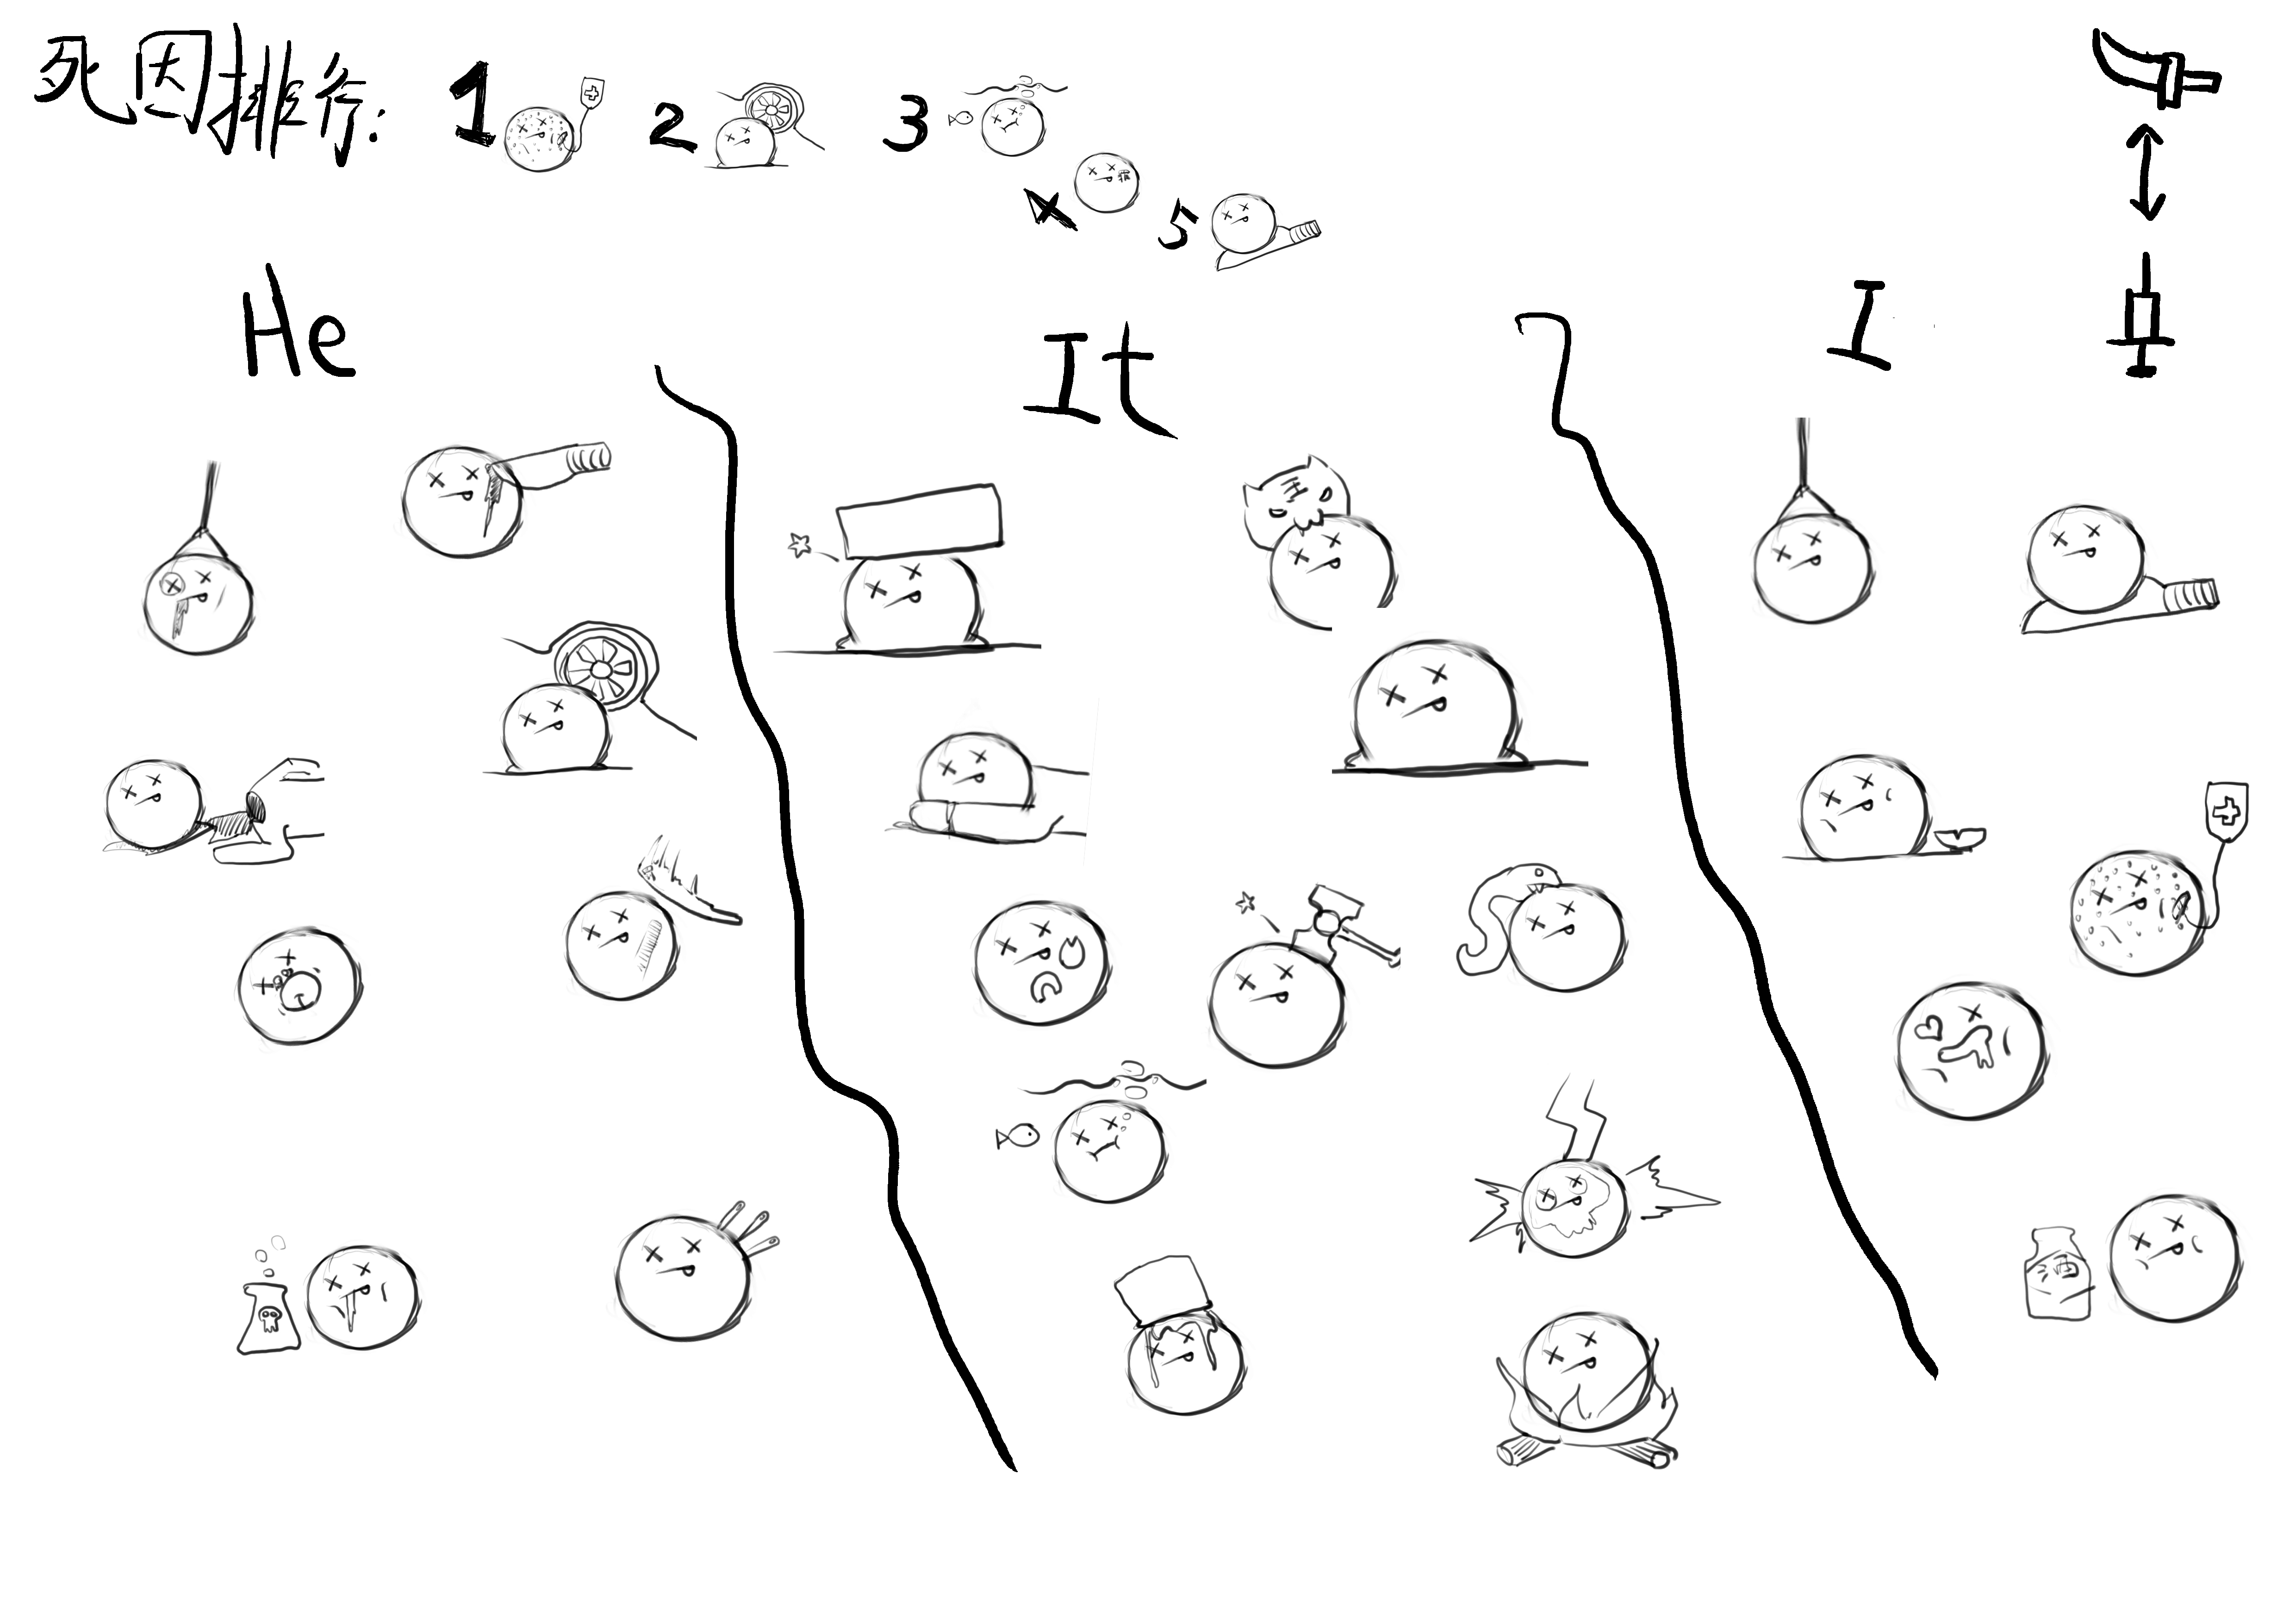 死因排行: 1 2 3
4 5
He It I
油